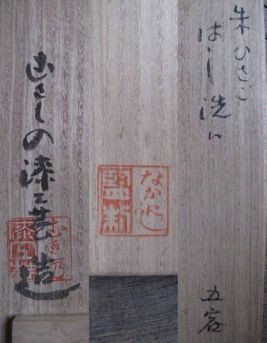 朱ひさご
はし洗い
五客
むさしの漆工芸造
なかにし